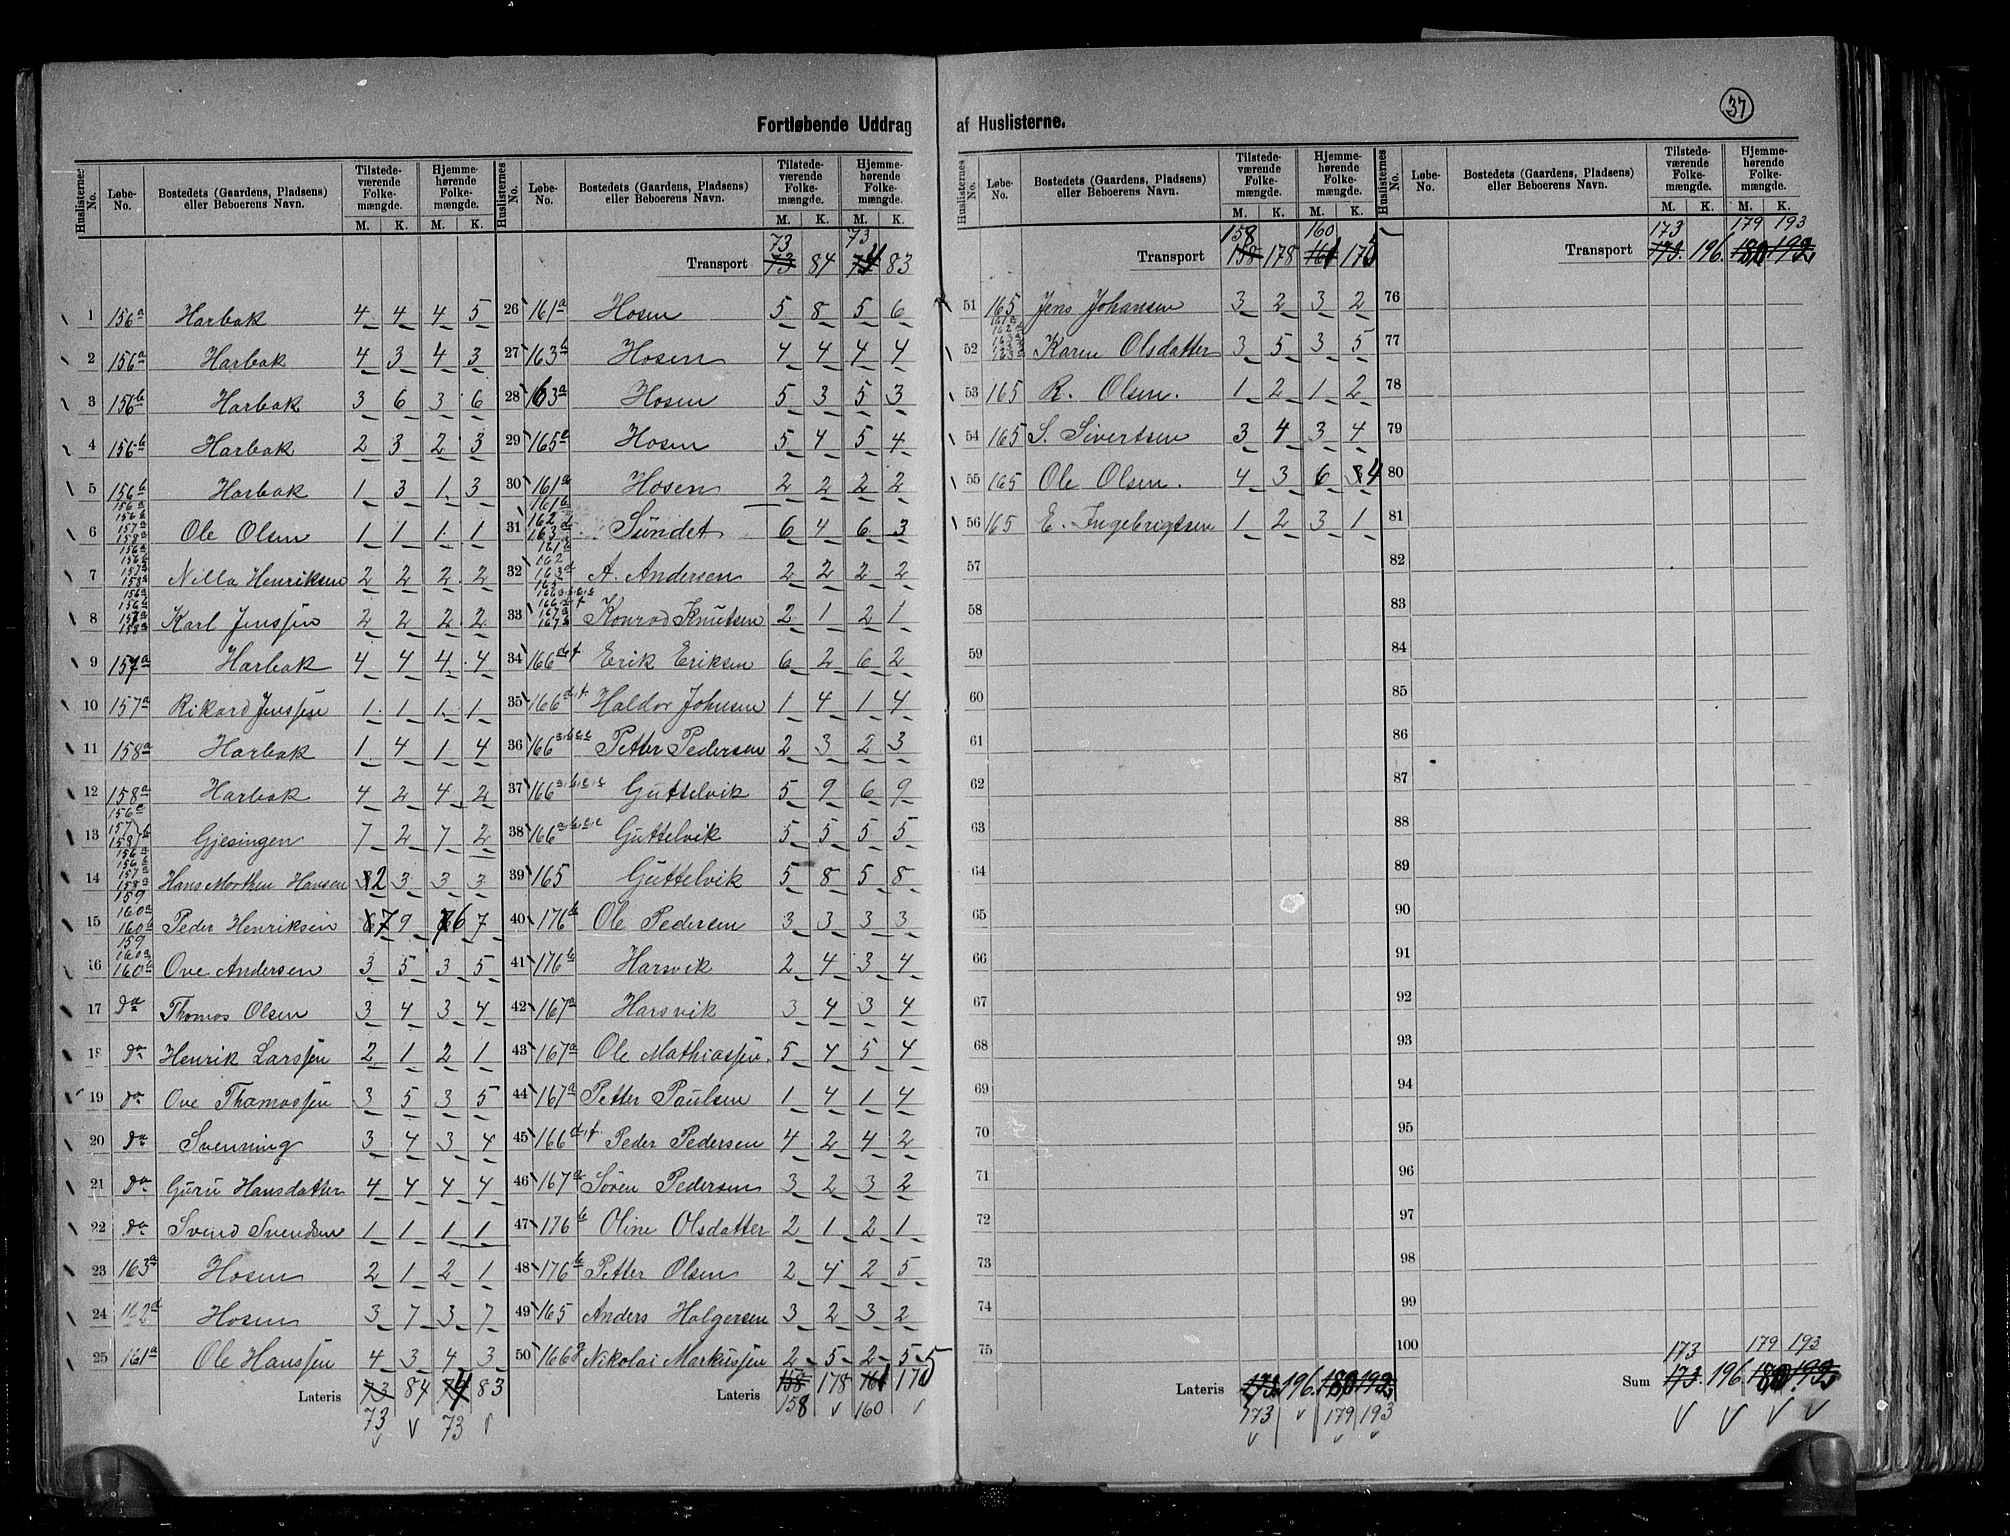 37
Fortløbende Uddrag af Huslisterne.
Huslisternes No. Løbe-No. Bostedets (Gaardens, Pladsens) eller Beboerens Navn. Tilstedeværende Folkemængde. M. K. Hjemmehørende Folkemængde. M. K.
1 156a Harbak 4 4 4 5
2 156a Harbak 4 3 4 3
3 156b Harbak 3 6 3 6
4 156b Harbak 2 3 2 3
5 156b Harbak 1 3 1 3
6 156a 156b 157a 158a Ole Olsen 1 1 1 1
7 156a 156b 157a 158a Nilla Henriksen 2 2 2 2
8 156a 156b 157a 158a Karl Jenssen 2 2 2 2
9 157a Harbak 4 4 4 4
10 157a Rikard Jenssen 1 1 1 1
11 158a Harbak 1 4 1 4
12 158a Harbak 4 2 4 2
13 156a 157 158 b Gjesingen 7 2 7 2
14 156a 156b 157a 158a Hans Morthen Hansen 2 3 3 3
15 159 160a 160b Peder Henriksen 7 9 6 7
16 159 160a 160b Ove Andersen 3 5 3 5
17 do Thomas Olsen 3 4 3 4
18 do Henrik Larssen 2 1 2 1
19 do Ove Thomassen 3 5 3 5
20 do Svenning 3 4 3 4
21 do Guru Hansdatter 4 4 4 4
22 do Svend Svendsen 1 1 1 1
23 163a Hosen 2 1 2 1
24 162d Hosen 3 7 3 7
25 161a Ole Hanssen 4 3 4 3
Lateris 73 84 74 83
73 73
Huslisternes No. Løbe-No. Bostedets (Gaardens, Pladsens) eller Beboerens Navn. Tilstedeværende Folkemængde. M. K. Hjemmehørende Folkemængde. M. K.
73 73
Transport 73 84 74 83
26 161a Hosen 5 8 5 6
27 163b Hosen 4 4 4 4
28 163a Hosen 5 3 5 3
29 165a Hosen 5 4 5 4
30 161a Hosen 2 2 2 2
31 161b 162 163d Sundet 6 4 6 3
32 161b 162 163d A. Andersen 2 2 2 2
33 Konrad Knutsen 2 1 2 1
34 166d,f Erik Eriksen 6 2 6 2
35 166d,f Haldor Johnsen 1 4 1 4
36 166a,b,c,e Petter Pedersen 2 3 2 3
37 166a,b,c,e Guttelvik 5 9 6 9
38 166a,b,c,e Guttelvik 5 5 5 5
39 165 Guttelvik 5 8 5 8
40 176b Ole Pedersen 3 3 3 3
41 176b Harsvik 2 4 3 4
42 167a Harsvik 3 4 3 4
43 167a Ole Mathiassen. 5 4 5 4
44 167a Petter Paulsen 1 4 1 4
45 166d,f Peder Pedersen 4 2 4 2
46 167a Sören Pedersen 3 2 3 2
47 176b Oline Olsdatter 2 1 2 1
48 176b Petter Olsen 2 4 2 5
49 165 Anders Holgersen 3 2 3 2
50 166g Nikolai Markussen 2 5 2 5 5
Lateris 158 178 161 175
158 160
Huslisternes No. Løbe-No. Bostedets (Gaardens, Pladsens) eller Beboerens Navn. Tilstedeværende Folkemængde. M. K. Hjemmehørende Folkemængde. M. K.
158 160
Transport 158 178 161 175
51 165 Jens Johansen 3 2 3 2
52 Karen Olsdatter 3 5 3 5
53 165 R. Olsen. 1 2 1 2
54 165 S. Sivertsen 3 4 3 4
55 165 Ole Olsen. 4 3 6 4
56 165 E. Ingebrigtsen 1 2 3 1
57
58
59
60
61
62
63
64
65
66
67
68
69
70
71
72
73
74
75
Lateris 173 196 180 192
173 179 193
Huslisternes No. Løbe-No. Bostedets (Gaardens, Pladsens) eller Beboerens Navn. Tilstedeværende Folkemængde. M. K. Hjemmehørende Folkemængde. M. K.
173 179 193
Transport 173. 196. 180 192
76
77
78
79
80
81
82
83
84
85
86
87
88
89
90
91
92
93
94
95
96
97
98
99
100
173 179 193
Sum 173. 196. 180 192